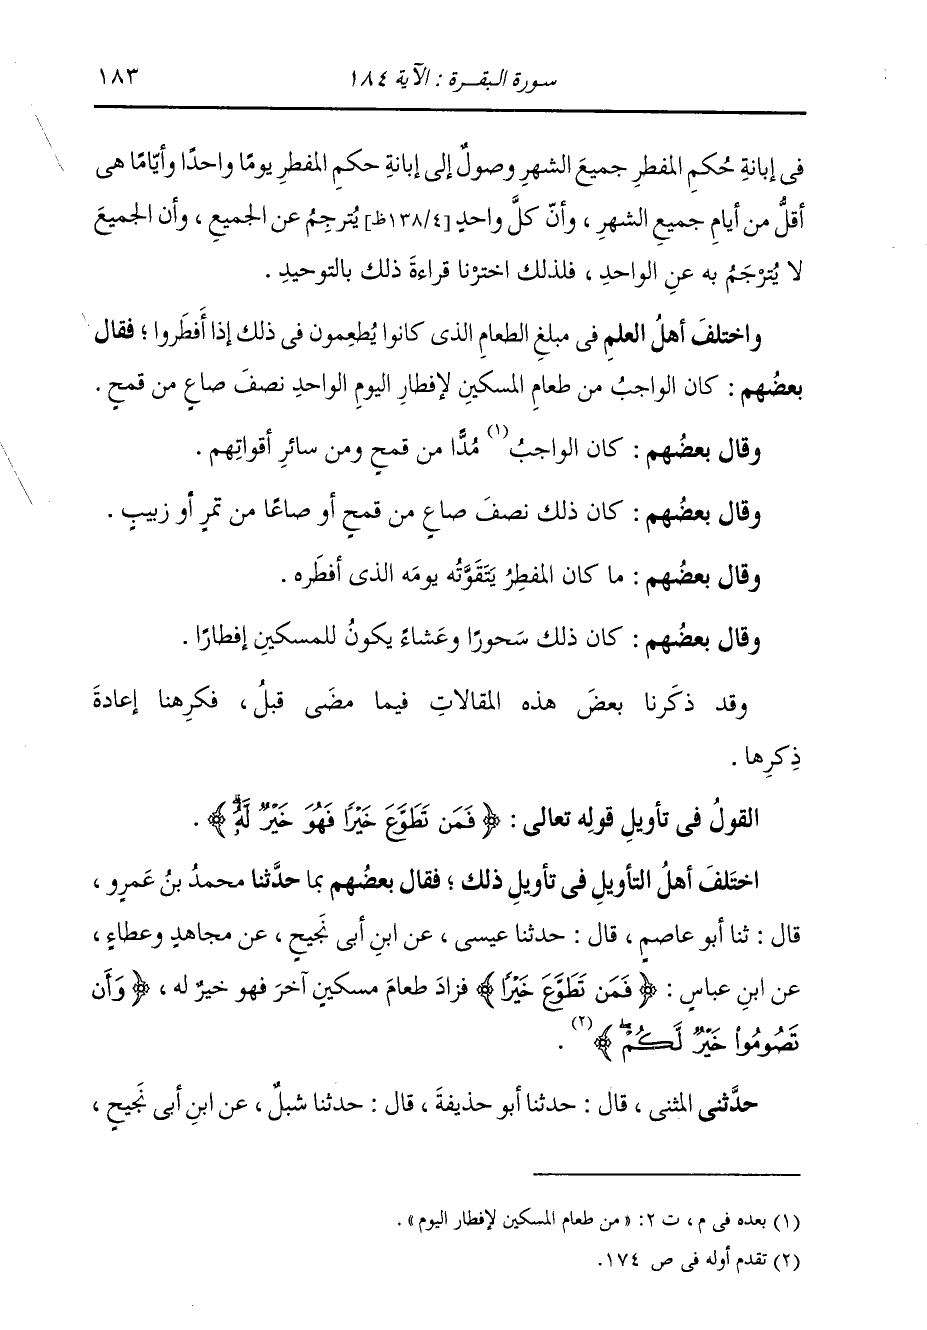 سورة البقرة : الآية ١٨٤ ١٨٣
فى إبانةِ حُكمِ المفطرِ جميعَ الشهرِ وصولٌ إلى إبانةِ حكمِ المفطرِ يومًا واحدًا وأيّامًا هى
أقلُّ من أيامِ جميعِ الشهرِ ، وأنّ كلَّ واحدٍ [١٣٨/٤ظ] يُترجِمُ عن الجميعِ ، وأن الجميعَ
لا يُترْجَمُ به عنِ الواحدِ ، فلذلك اخترْنا قراءةَ ذلك بالتوحيدِ .
واختلفَ أهلُ العلمِ فى مبلغِ الطعامِ الذى كانوا يُطعِمون فى ذلك إذا أَفطَروا ؛ فقال
بعضُهم : كان الواجبُ من طعامِ المسكينِ لإفطارِ اليومِ الواحدِ نصفَ صاعٍ من قمحٍ .
وقال بعضُهم : كان الواجبُ (١) مُدًّا من قمحٍ ومن سائرِ أقواتِهم .
وقال بعضُهم : كان ذلك نصفَ صاعٍ من قمحٍ أو صاعًا من تمرٍ أو زبيبٍ .
وقال بعضُهم : ما كان المفطِرُ يَتَقَوَّتُه يومَه الذى أفطَره .
وقال بعضُهم : كان ذلك سَحورًا وعَشاءً يكونُ للمسكينِ إفطارًا .
وقد ذكَرنا بعضَ هذه المقالاتِ فيما مضَى قبلُ ، فكرِهنا إعادةَ
ذِكرِها .
القولُ فى تأويلِ قولِه تعالى : ﴿ فَمَن تَطَوَّعَ خَيْرًا فَهُوَ خَيْرٌ لَّهُۥ ﴾ .
اختَلفَ أهلُ التأويلِ فى تأويلِ ذلك ؛ فقال بعضُهم بما حدَّثنا محمدُ بنُ عَمرٍو ،
قال : ثنا أبو عاصمٍ ، قال : حدثنا عيسى ، عن ابنِ أبى نَجيحٍ ، عن مجاهدٍ وعطاءٍ ،
عن ابنِ عباسٍ : ﴿ فَمَن تَطَوَّعَ خَيْرًا ﴾ فزادَ طعامَ مسكينٍ آخرَ فهو خيرٌ له ، ﴿ وَأَن
تَصُومُوا۟ خَيْرٌ لَّكُمْ ﴾ (٢) .
حدَّثنى المثنى ، قال : حدثنا أبو حذيفةَ ، قال : حدثنا شبلٌ ، عن ابنِ أبى نَجيحٍ ،
(١) بعده فى م ، ت ٢ : « من طعام المسكين لإفطار اليوم » .
(٢) تقدم أوله فى ص ١٧٤ .